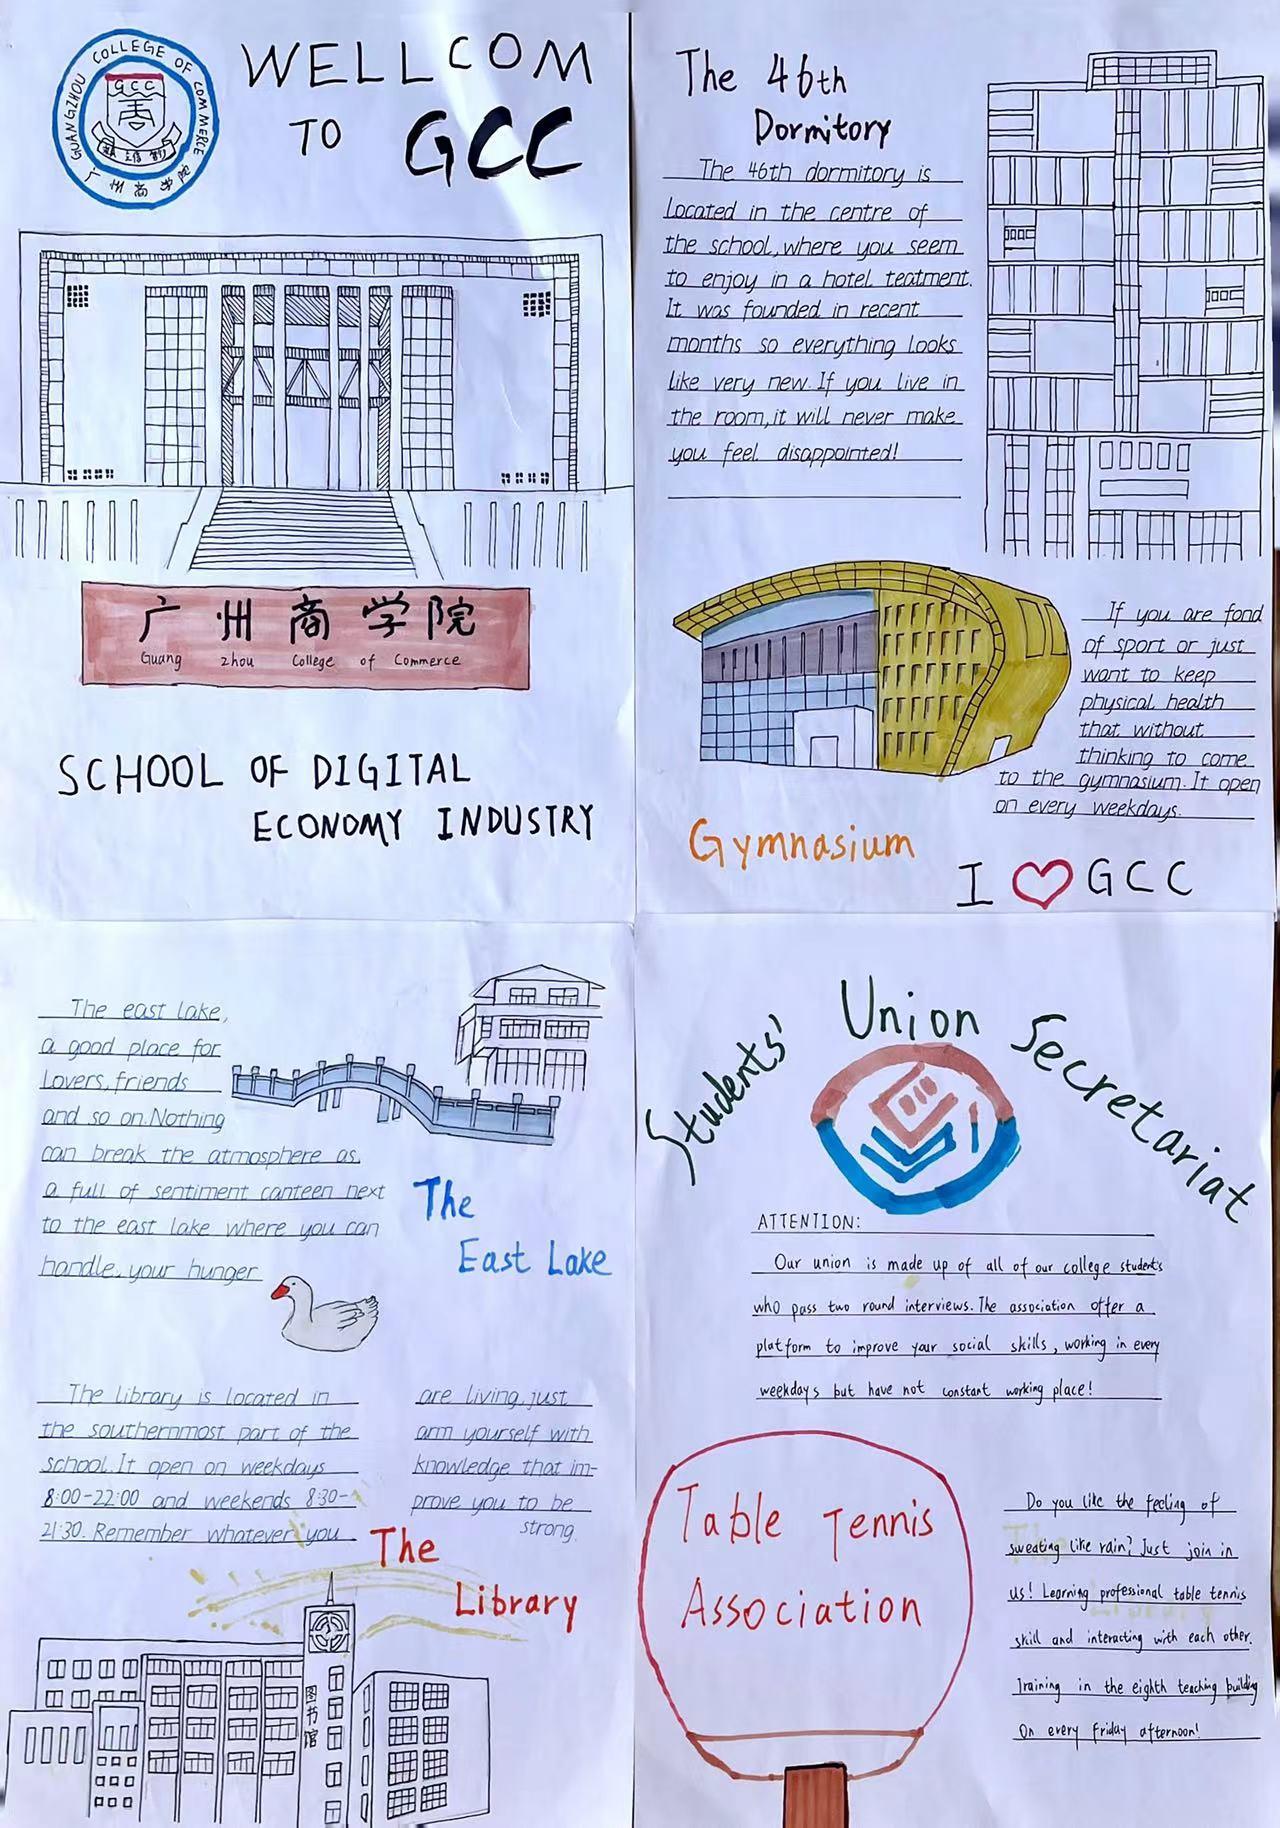 GUANGZHOU COLLEGE OF COMMERCE
GCC
广州商学院
WELLCOM
TO GCC
广州商学院
Guang zhou College of Commerce
SCHOOL OF DIGITAL
ECONOMY INDUSTRY
The 46th
Dormitory
The 46th dormitory is
located in the centre of
the school, where you seem
to enjoy in a hotel teatment.
It was founded in recent
months so everything looks
like very new. If you live in
the room, it will never make
you feel disappointed!
If you are fond
of sport or just
want to keep
physical health
that without
thinking to come
to the gymnasium. It open
on every weekdays.
Gymnasium
I ♡ GCC
The east lake,
a good place for
lovers, friends
and so on. Nothing
can break the atmosphere as
a full of sentiment canteen next
to the east lake where you can
handle your hunger
The
East Lake
The library is located in
the southernmost part of the
school. It open on weekdays
8:00-22:00 and weekends 8:30-
21:30. Remember whatever you
are living, just
arm yourself with
knowledge that im-
prove you to be
strong.
The
Library
图书馆
Students' Union Secretariat
ATTENTION:
Our union is made up of all of our college students
who pass two round interviews. The association offer a
platform to improve your social skills, working in every
weekdays but have not constant working place!
Table Tennis
Association
Do you like the feeling of
sweating like rain? Just join in
us! Learning professional table tennis
skill and interacting with each other.
Training in the eighth teaching building
On every friday afternoon!